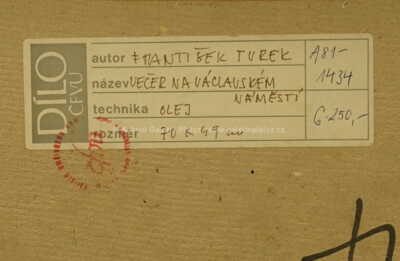 DÍLO
ČFVU
autor FRANTIŠEK TUREK
název VEČER NA VÁCLAVSKÉM
NÁMĚSTÍ
technika OLEJ
rozměr 70 x 49 cm
A81-
1434
6.250,-